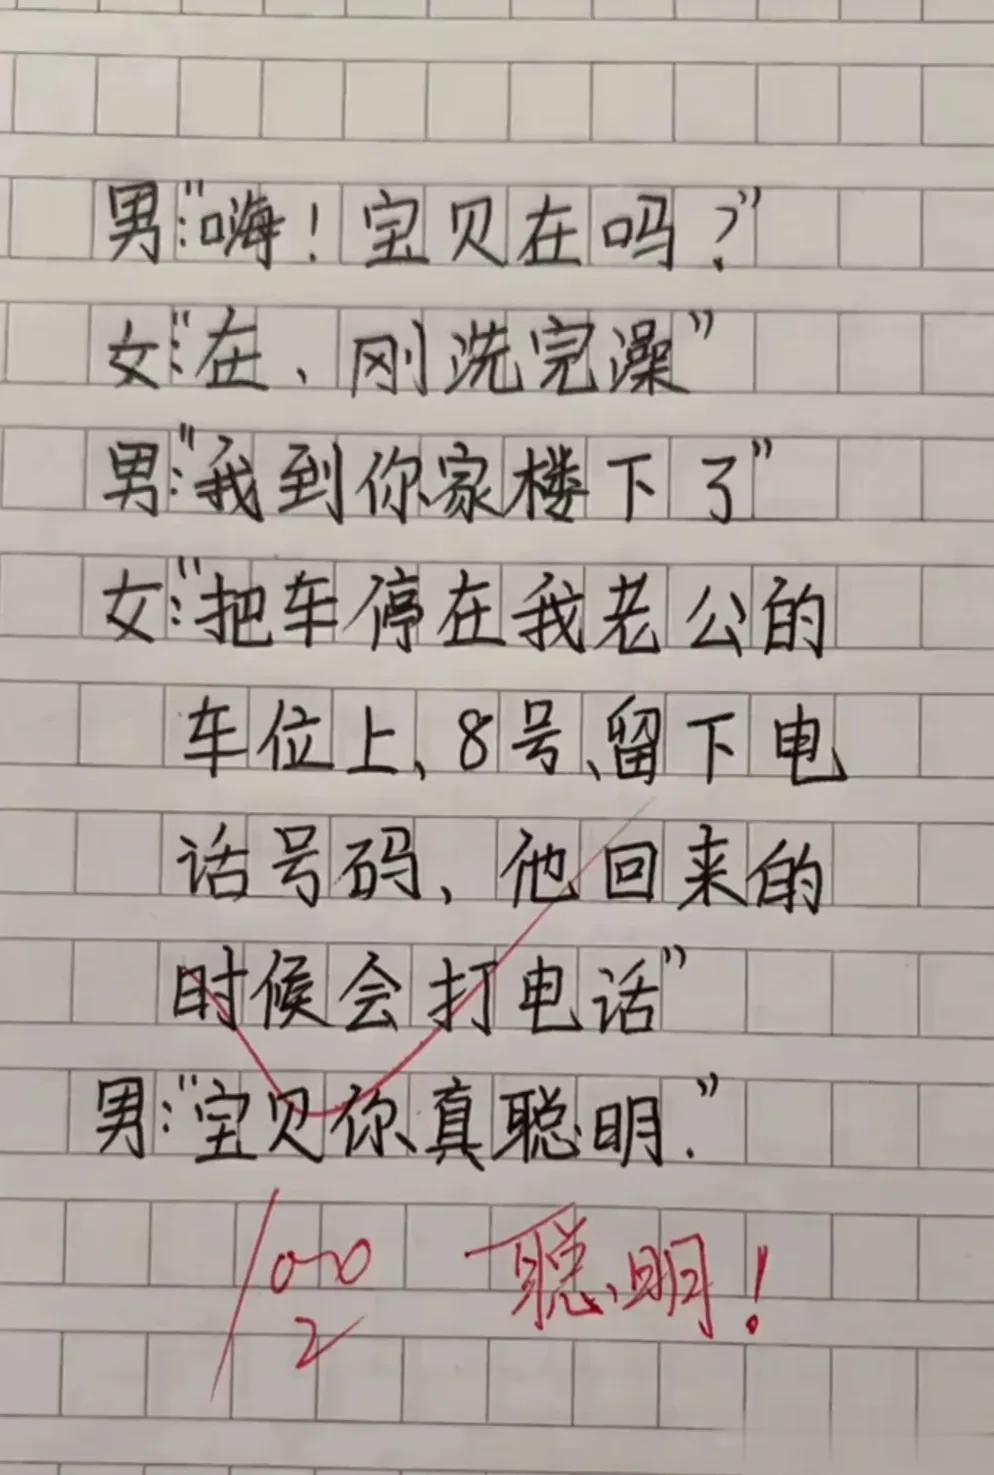 男:"嗨!宝贝在吗?"
女:"在、刚洗完澡"
男:"我到你家楼下了"
女:"把车停在我老公的
车位上、8号、留下电
话号码、他回来的
时候会打电话"
男:"宝贝你真聪明."
100 聪明!
2